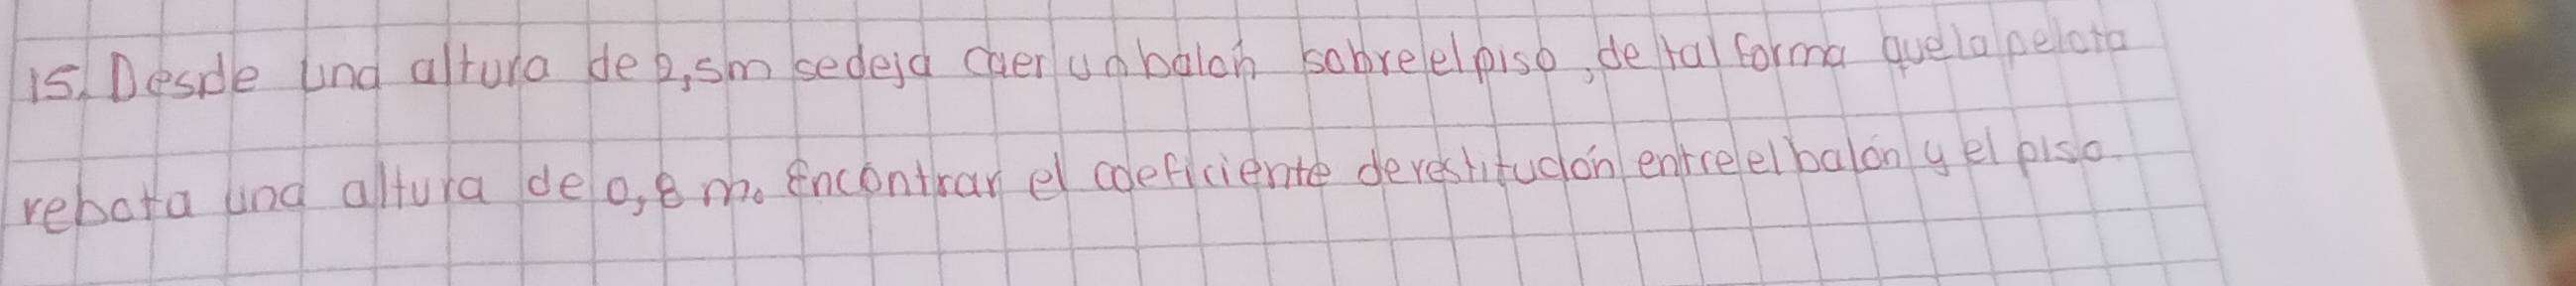 15. Desde una altura de 2,5m se deja caer un balón sobre el piso, de tal forma que la pelota
rebota una altura de 0,8 m. Encontrar el coeficiente de restitución entre el balón y el piso